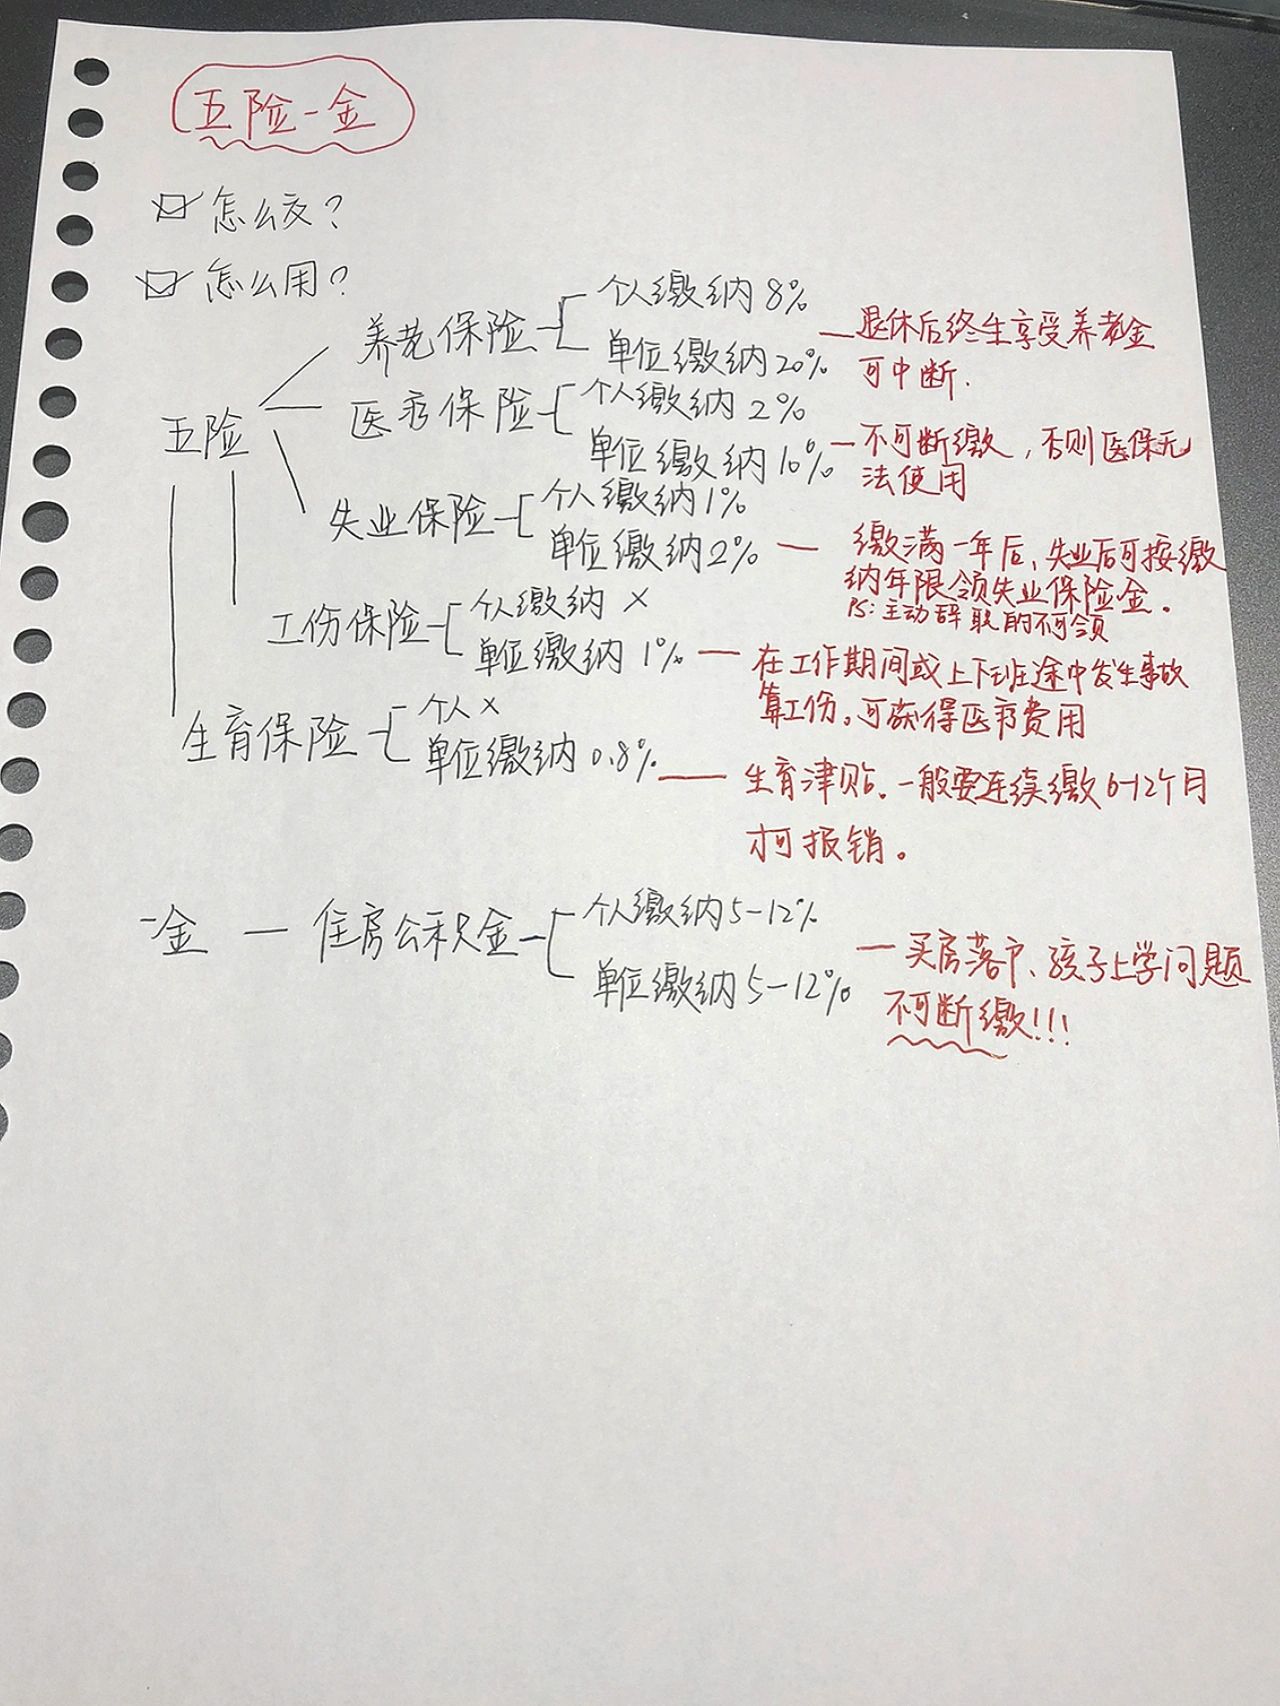 五险一金
怎么交？
怎么用？
五险
养老保险
个人缴纳8%
单位缴纳20%
退休后终生享受养老金
可中断.
医疗保险
个人缴纳2%
单位缴纳10%
不可断缴，否则医保无
法使用
失业保险
个人缴纳1%
单位缴纳2%
缴满一年后、失业后可按缴
纳年限领失业保险金。
PS：主动辞职的不可领
工伤保险
个人缴纳 ×
单位缴纳 1%
在工作期间或上下班途中发生事故
算工伤。可获得医疗费用
生育保险
个人 ×
单位缴纳0.8%
生育津贴.一般要连续缴6-12个月
才可报销。
一金 — 住房公积金
个人缴纳5-12%
单位缴纳5-12%
买房落户、孩子上学问题
不可断缴!!!